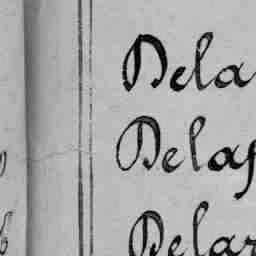 Dela
Delaf
Delar